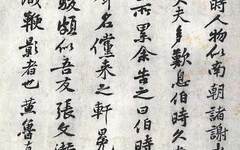 時人物似南朝諸謝
大夫多歎息伯時久
所累余告之曰伯時
名儻來之軒冕
駿頗似吾友張文潛
鞭影者也黃魯直